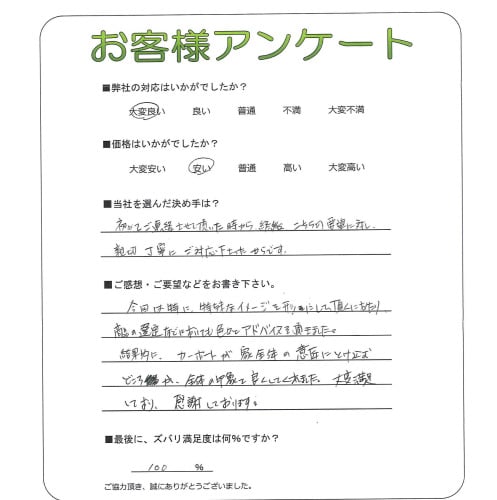 お客様アンケート
■弊社の対応はいかがでしたか?
大変良い 良い 普通 不満 大変不満
■価格はいかがでしたか?
大変安い 安い 普通 高い 大変高い
■当社を選んだ決め手は?
初めてご連絡させて頂いた時から終始こちらの要望に対し、
親切丁寧にご対応下さったからです。
■ご感想・ご要望などをお書き下さい。
今回は特に、特殊なイメージを形にして頂くにあたり、
商品の選定などにおいても色々とアドバイスを頂きました。
結果的に、カーポートが家全体の意匠にとけ込む
どころか、全体の印象を良くしてくれました。大変満足
しており、感謝しております。
■最後に、ズバリ満足度は何%ですか?
100 %
ご協力頂き、誠にありがとうございました。